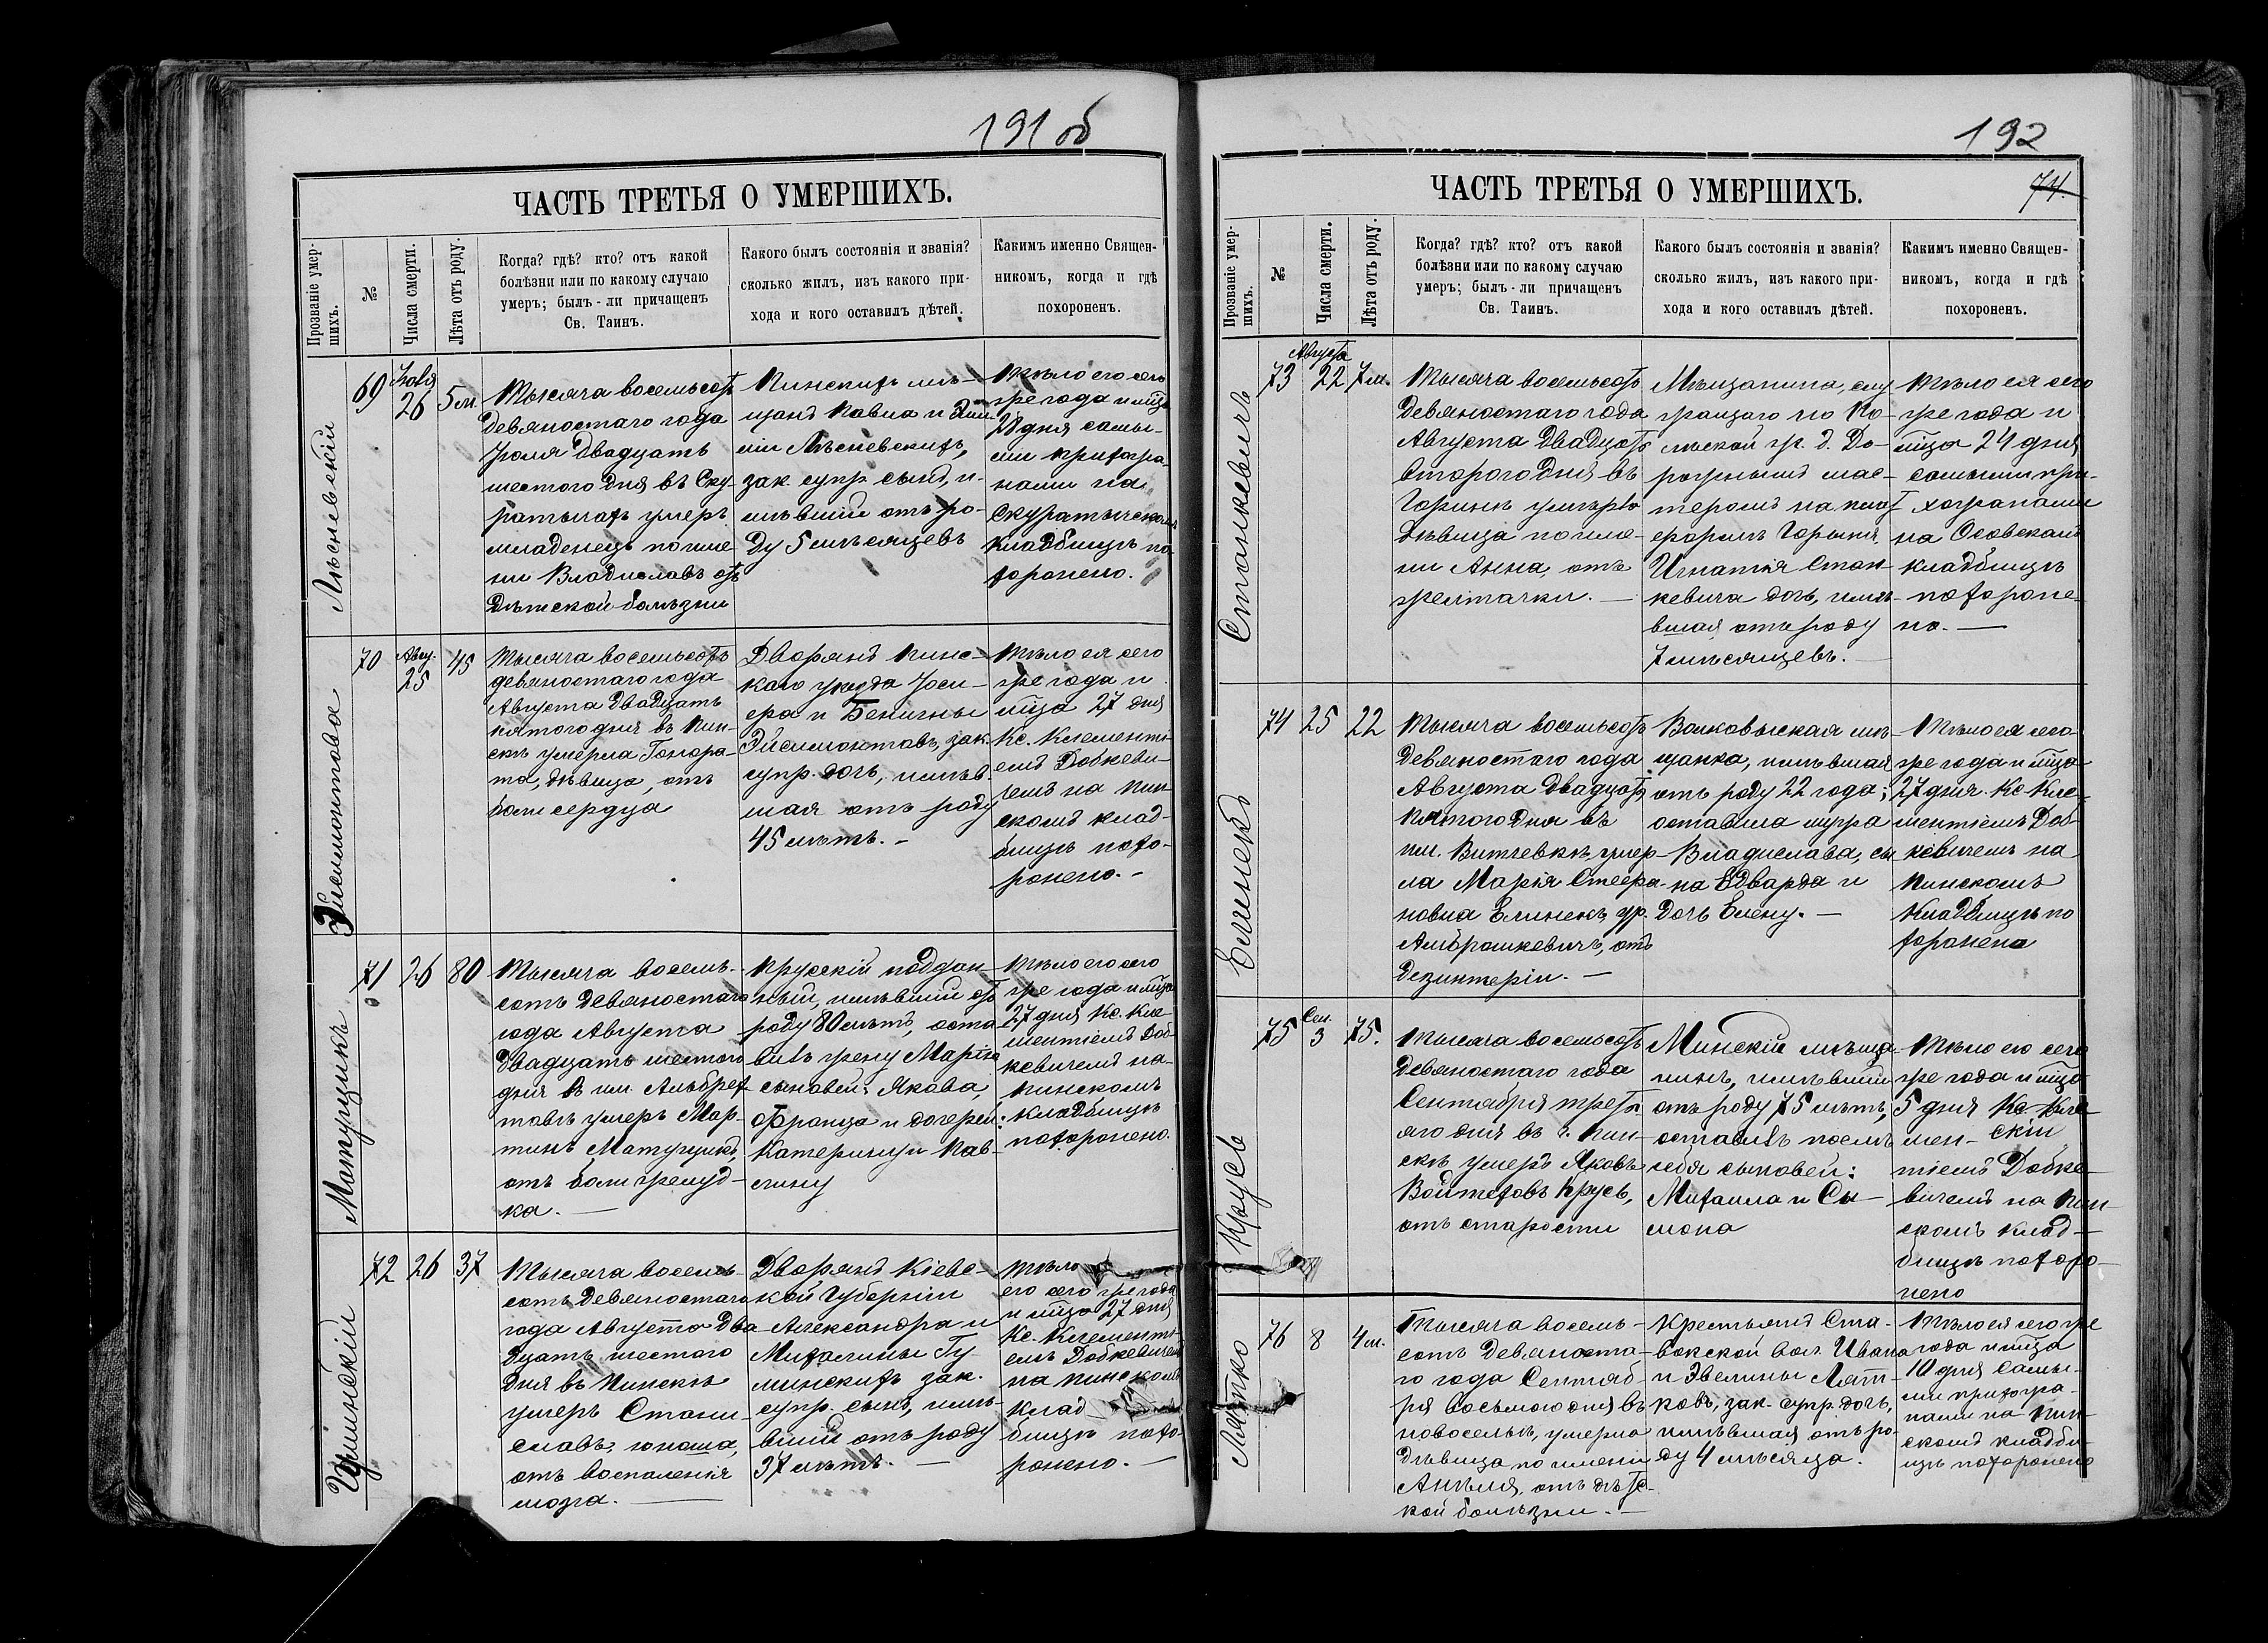 191 об
ЧАСТЬ ТРЕТЬЯ О УМЕРШИХЪ.
Прозваніе умер-
шихъ.
№
Числа смерти.
Лѣта отъ роду.
Когда? гдѣ? кто? отъ какой
болѣзни или по какому случаю
умеръ; былъ-ли причащенъ
Св. Таинъ.
Какого былъ состоянія и званія?
сколько жилъ, изъ какого при-
хода и кого оставилъ дѣтей.
Какимъ именно Священ-
никомъ, когда и гдѣ
похороненъ.
Лѣсневскій
69
Іюля
26
5 м.
Тысяча восемьсотъ
девяностаго года
Іюля двадцать
шестого дня въ Ску-
ратычахъ умеръ
младенецъ по име-
ни Владиславъ отъ
дѣтской болѣзни
Пинскихъ мѣ-
щанъ Павла и Эми-
ліи Лѣсневскихъ,
зак. супр. сынъ, и-
мѣвшій отъ ро-
ду 5 мѣсяцевъ
Тѣло его сего
же года и мца
28 дня самы-
ми прихожа-
нами на
Скуратыческомъ
кладбищѣ по-
хоронено.
Эйсимонтова
70
Авгу.
25
45
Тысяча восемьсотъ
девяностаго года
Августа двадцать
пятого дня въ Пин-
скѣ умерла Гонора-
та, дѣвица, отъ
боли сердца
Дворянъ Пинс-
каго уѣзда Іоси-
фа и Бенигны
Эйсимонтовъ, зак.
супр. дочь, имѣв-
шая отъ роду
45 лѣтъ. -
Тѣло ея сего
же года и
мца 27 дня
Кс. Клементі-
емъ Добкеви-
чемъ на Пин-
скомъ клад-
бищѣ похо-
ронено. -
Матущикъ
71
26
80
Тысяча восемь-
сотъ девяностаго
года Августа
двадцать шестого
дня въ им. Альбрех-
товѣ умеръ Мар-
тинъ Матущикъ,
отъ боли желуд-
ка. -
Прусскій поддан-
ный, имѣвшій отъ
роду 80 лѣтъ, оста-
вилъ жену Марію
сыновей: Якова,
Франца и дочерей:
Катерину и Пав-
лину
Тѣло его сего
же года и мца
27 дня Кс. Кле-
ментіемъ Доб-
кевичемъ на
Пинскомъ
кладбищѣ
похоронено.
72
26
37
Тысяча восемь-
сотъ девяностаго
года Августа два-
дцать шестого
дня въ Пинскѣ
умеръ Стани-
славъ, юноша,
отъ воспаленія
мозга. -
Дворянъ Кіевс-
кой Губерніи
Александра и
Михалины Гу-
минскихъ зак.
супр. сынъ, имѣ-
вшій отъ роду
37 лѣтъ. -
Тѣло
его сего же года
и мца 27 дня
Кс. Клементі-
емъ Добкевичемъ
на Пинскомъ
клад-
бищѣ похо-
ронено. -
192
ЧАСТЬ ТРЕТЬЯ О УМЕРШИХЪ.
74.
Прозваніе умер-
шихъ.
№
Числа смерти.
Лѣта отъ роду.
Когда? гдѣ? кто? отъ какой
болѣзни или по какому случаю
умеръ; былъ-ли причащенъ
Св. Таинъ.
Какого былъ состоянія и званія?
сколько жилъ, изъ какого при-
хода и кого оставилъ дѣтей.
Какимъ именно Священ-
никомъ, когда и гдѣ
похороненъ.
Станкевичъ
73
Августа
22
7 м.
Тысяча восемьсотъ
девяностаго года
Августа двадцать
второго дня въ
Горынѣ
дѣвица по име-
ни Анна, отъ
желтачки. -
Мѣщанина, слу-
жащаго по По-
лѣской ж. д. До-
рожнымъ мас-
теромъ на
Горынѣ,
Игнатія Стан-
кевича дочь, имѣ-
вшая отъ роду
7 мѣсяцевъ. -
Тѣло ея сего
же года и
мца 24 дня
самыми при-
хожанами
на Осовскомъ
кладбищѣ
похороне-
но. -
Елинекъ
74
25
22
Тысяча восемьсотъ
девяностаго года
Августа двадцать
пятого дня въ
им. Витчевкѣ, умер-
ла Марія Стефа-
новна Елинекъ, ур.
Амброшкевичъ, отъ
дезинтеріи. -
Волковыская мѣ-
щанка, имѣвшая
отъ роду 22 года;
оставила мужа
Владислава, сы-
на Едварда и
дочь Елену. -
Тѣло ея сего
же года и мца
27 дня Кс. Кле-
ментіемъ Доб-
кевичемъ на
Пинскомъ
кладбищѣ по
хоронено
Крусь
75
Сен.
3
75.
Тысяча восемьсотъ
девяностаго года
Сентября треть-
яго дня въ г. Пин-
скѣ умеръ Яковъ
Войтеховъ Крусь,
отъ старости
Минскій мѣща-
нинъ, имѣвшій
отъ роду 75 лѣтъ,
оставилъ послѣ
себя сыновей:
Михаила и Сы-
мона
Тѣло его сего
же года и мца
5 дня Кс. Кле-
мен-
тіемъ Добке-
вичемъ на Пин-
скомъ клад-
бищѣ похоро-
нено
Лятко
76
8
4 м.
Тысяча восемь-
сотъ девяноста-
го года Сентяб-
ря восьмого дня въ
Новоселкѣ, умерла
дѣвица по имени
Анѣля, отъ дѣтс-
кой болѣзни. -
Крестьянъ Ста-
вокской вол. Ивана
и Эвелины Лят-
ковъ, зак. супр. дочь,
имѣвшая отъ ро-
ду 4 мѣсяца.
Тѣло ея сего же
года и мца
10 дня самы-
ми прихожа-
нами на Пин-
скомъ кладби-
щѣ похоронено